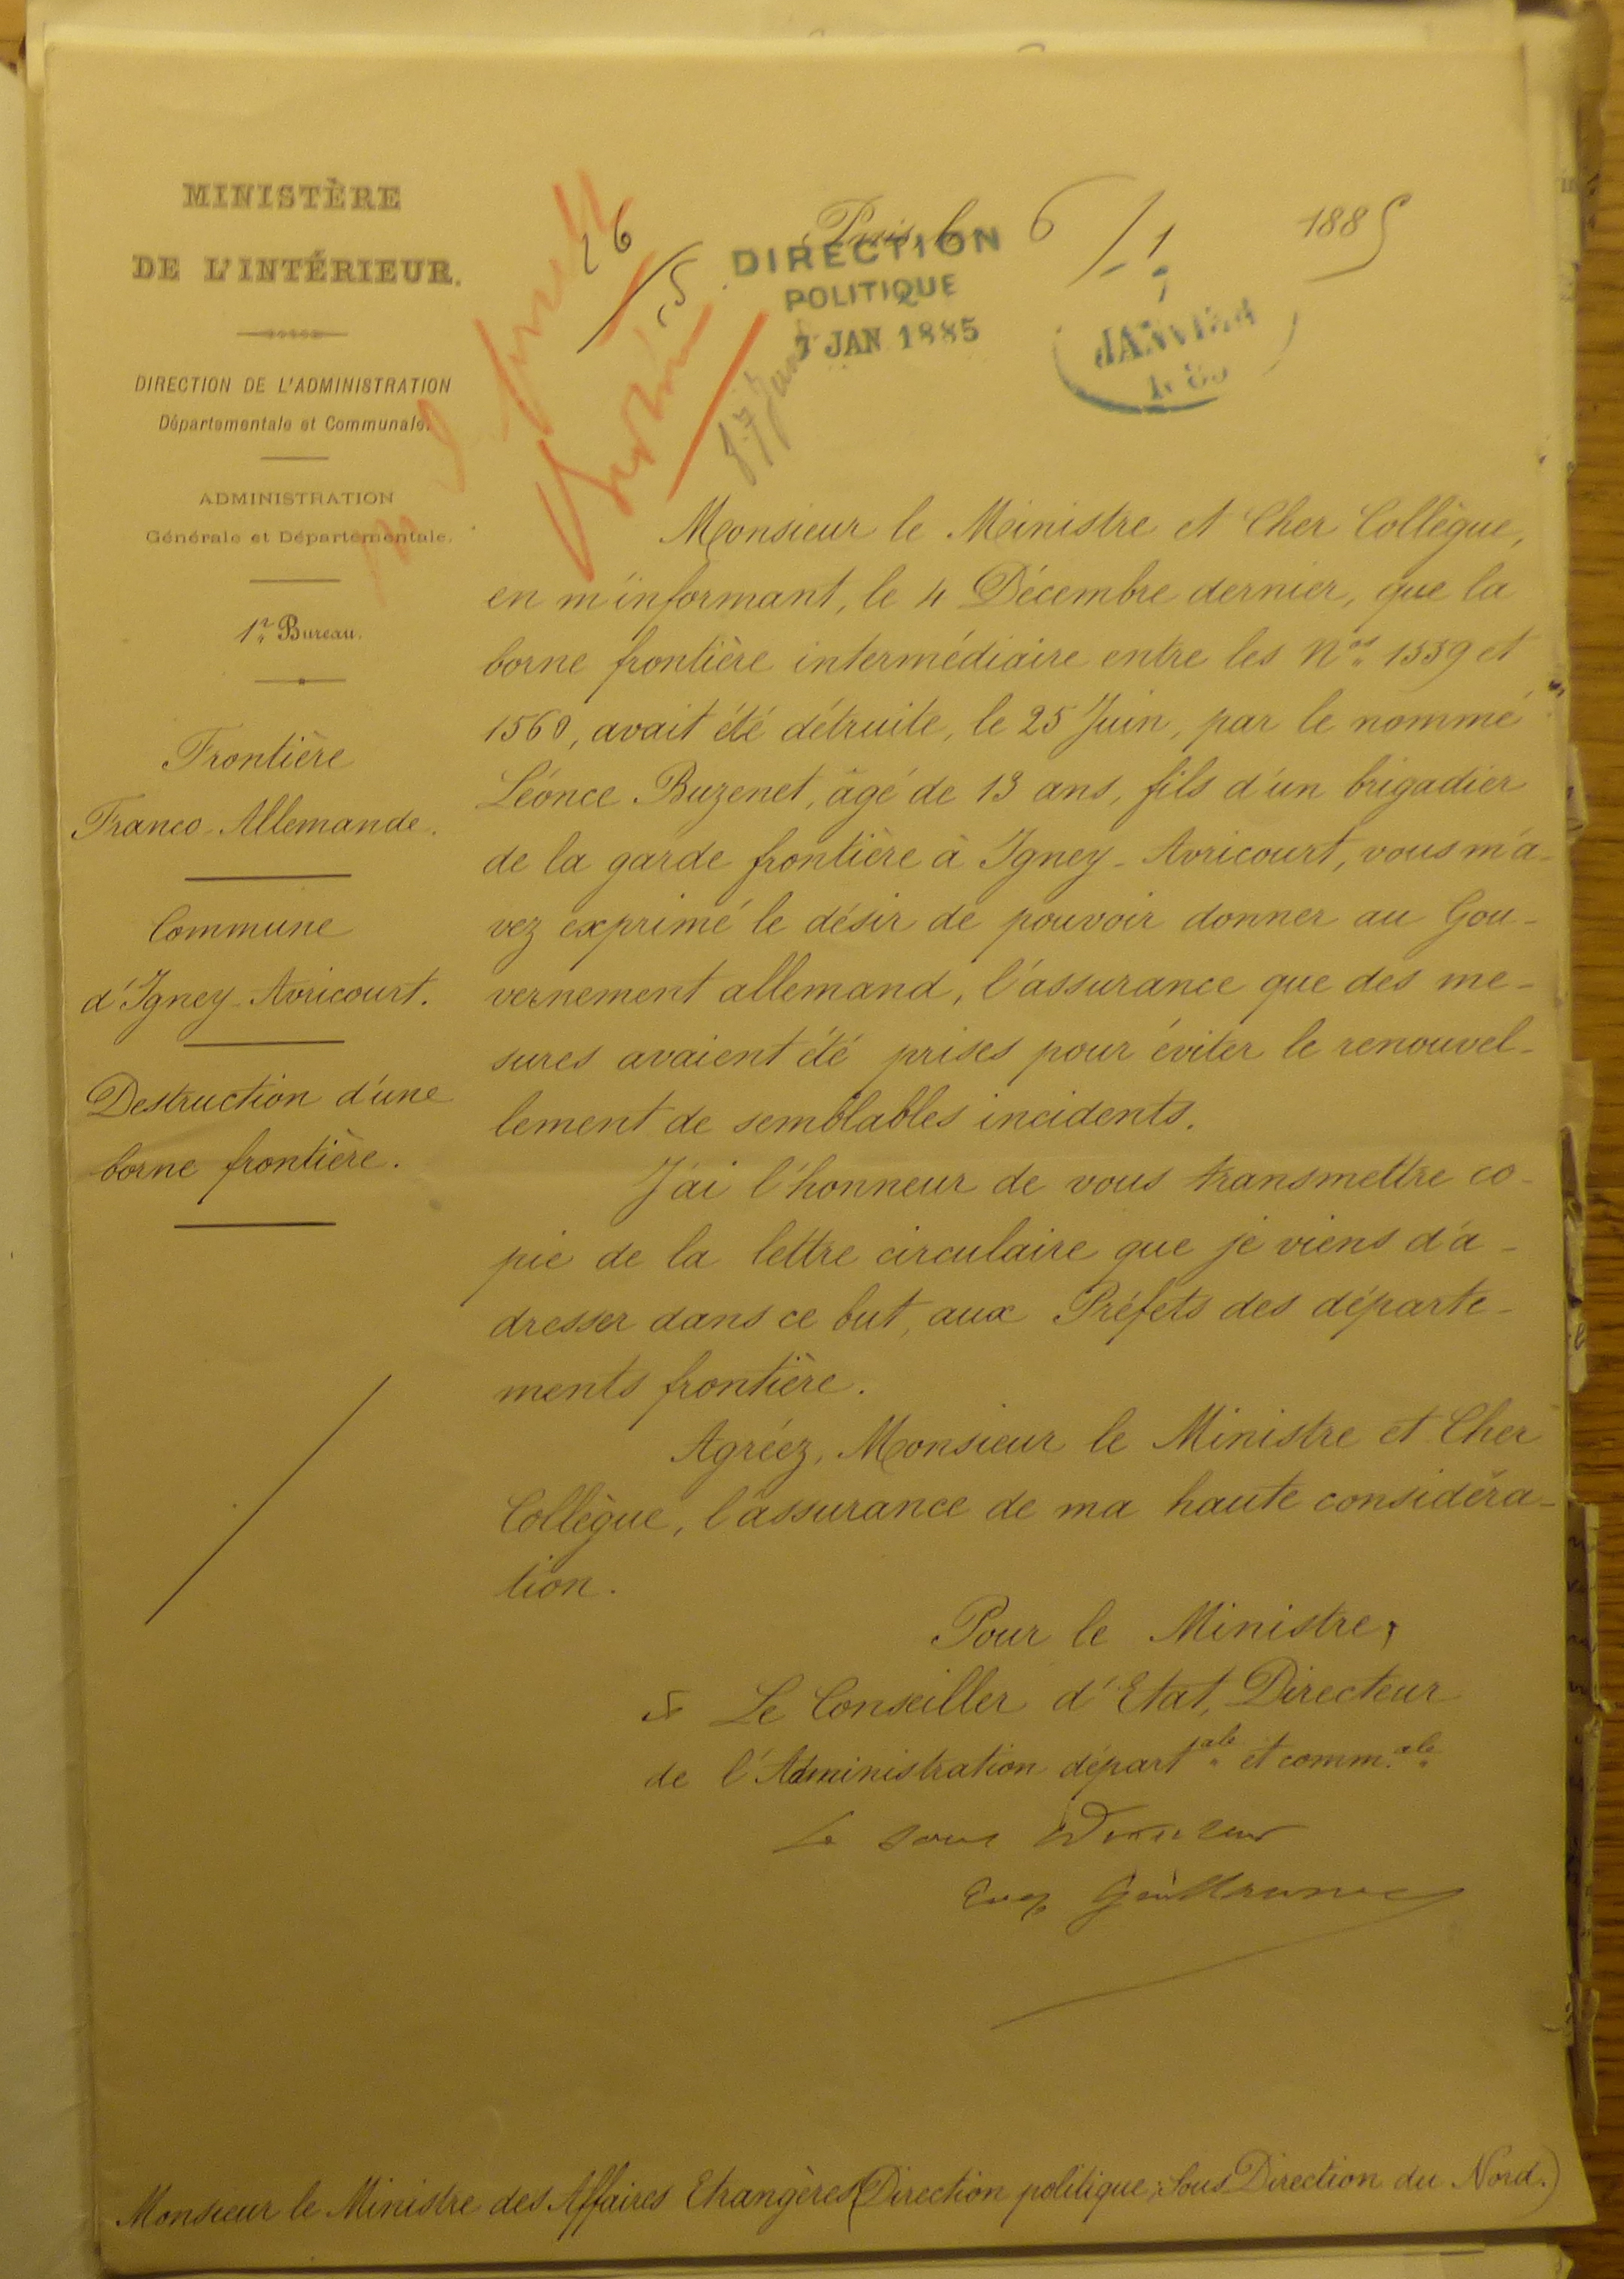 MINISTÈRE
DE L'INTÉRIEUR.
DIRECTION DE L'ADMINISTRATION
Départementale et Communale.
ADMINISTRATION
Générale et Départementale.
1er Bureau.
Frontière
Franco-Allemande.
Commune
d'Igney-Avricourt.
Destruction d'une
borne frontière.
26
5
Paris, le 6/1 1885
DIRECTION
POLITIQUE
7 JAN 1885
JANVIER
Monsieur le Ministre et Cher Collègue,
en m'informant, le 4 Décembre dernier, que la
borne frontière intermédiaire entre les Nos 1559 et
1560, avait été détruite, le 25 Juin, par le nommé
Léonce Buzenet, âgé de 13 ans, fils d'un brigadier
de la garde frontière à Igney-Avricourt, vous m'a-
vez exprimé le désir de pouvoir donner au Gou-
vernement allemand, l'assurance que des me-
sures avaient été prises pour éviter le renouvel-
lement de semblables incidents.
J'ai l'honneur de vous transmettre co-
pie de la lettre circulaire que je viens d'a-
dresser dans ce but, aux Préfets des départe-
ments frontière.
Agréez, Monsieur le Ministre et Cher
Collègue, l'assurance de ma haute considéra-
tion.
Pour le Ministre,
Le Conseiller d'Etat, Directeur
de l'Administration départale et commale
Le sous Directeur
Monsieur le Ministre des Affaires Etrangères (Direction politique; Sous Direction du Nord.)